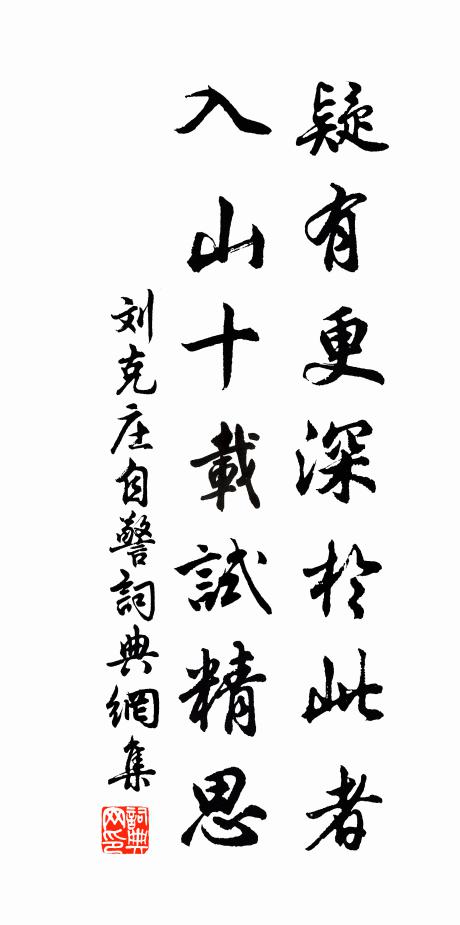 疑有更深於此者
入山十載試精思
刘克庄自警詞典網集
詞典网印